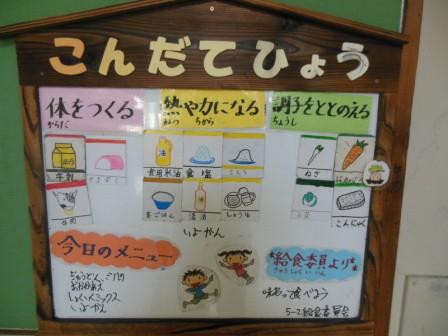 こんだてひょう
体をつくる
からだ
熱や力になる
ねつ ちから
調子をととのえる
ちょうし
牛乳
かまぼこ
牛肉
食用米油
食塩
さとう
麦ごはん
清酒
しょうゆ
ねぎ
こんにゃく
いよかん
今日のメニュー
ぎゅうどん、ミルク
おかかあえ
しょくんミックス
いよかん
給食委員より
きゅうしょくいいん
味わって食べよう
5-2給食委員会